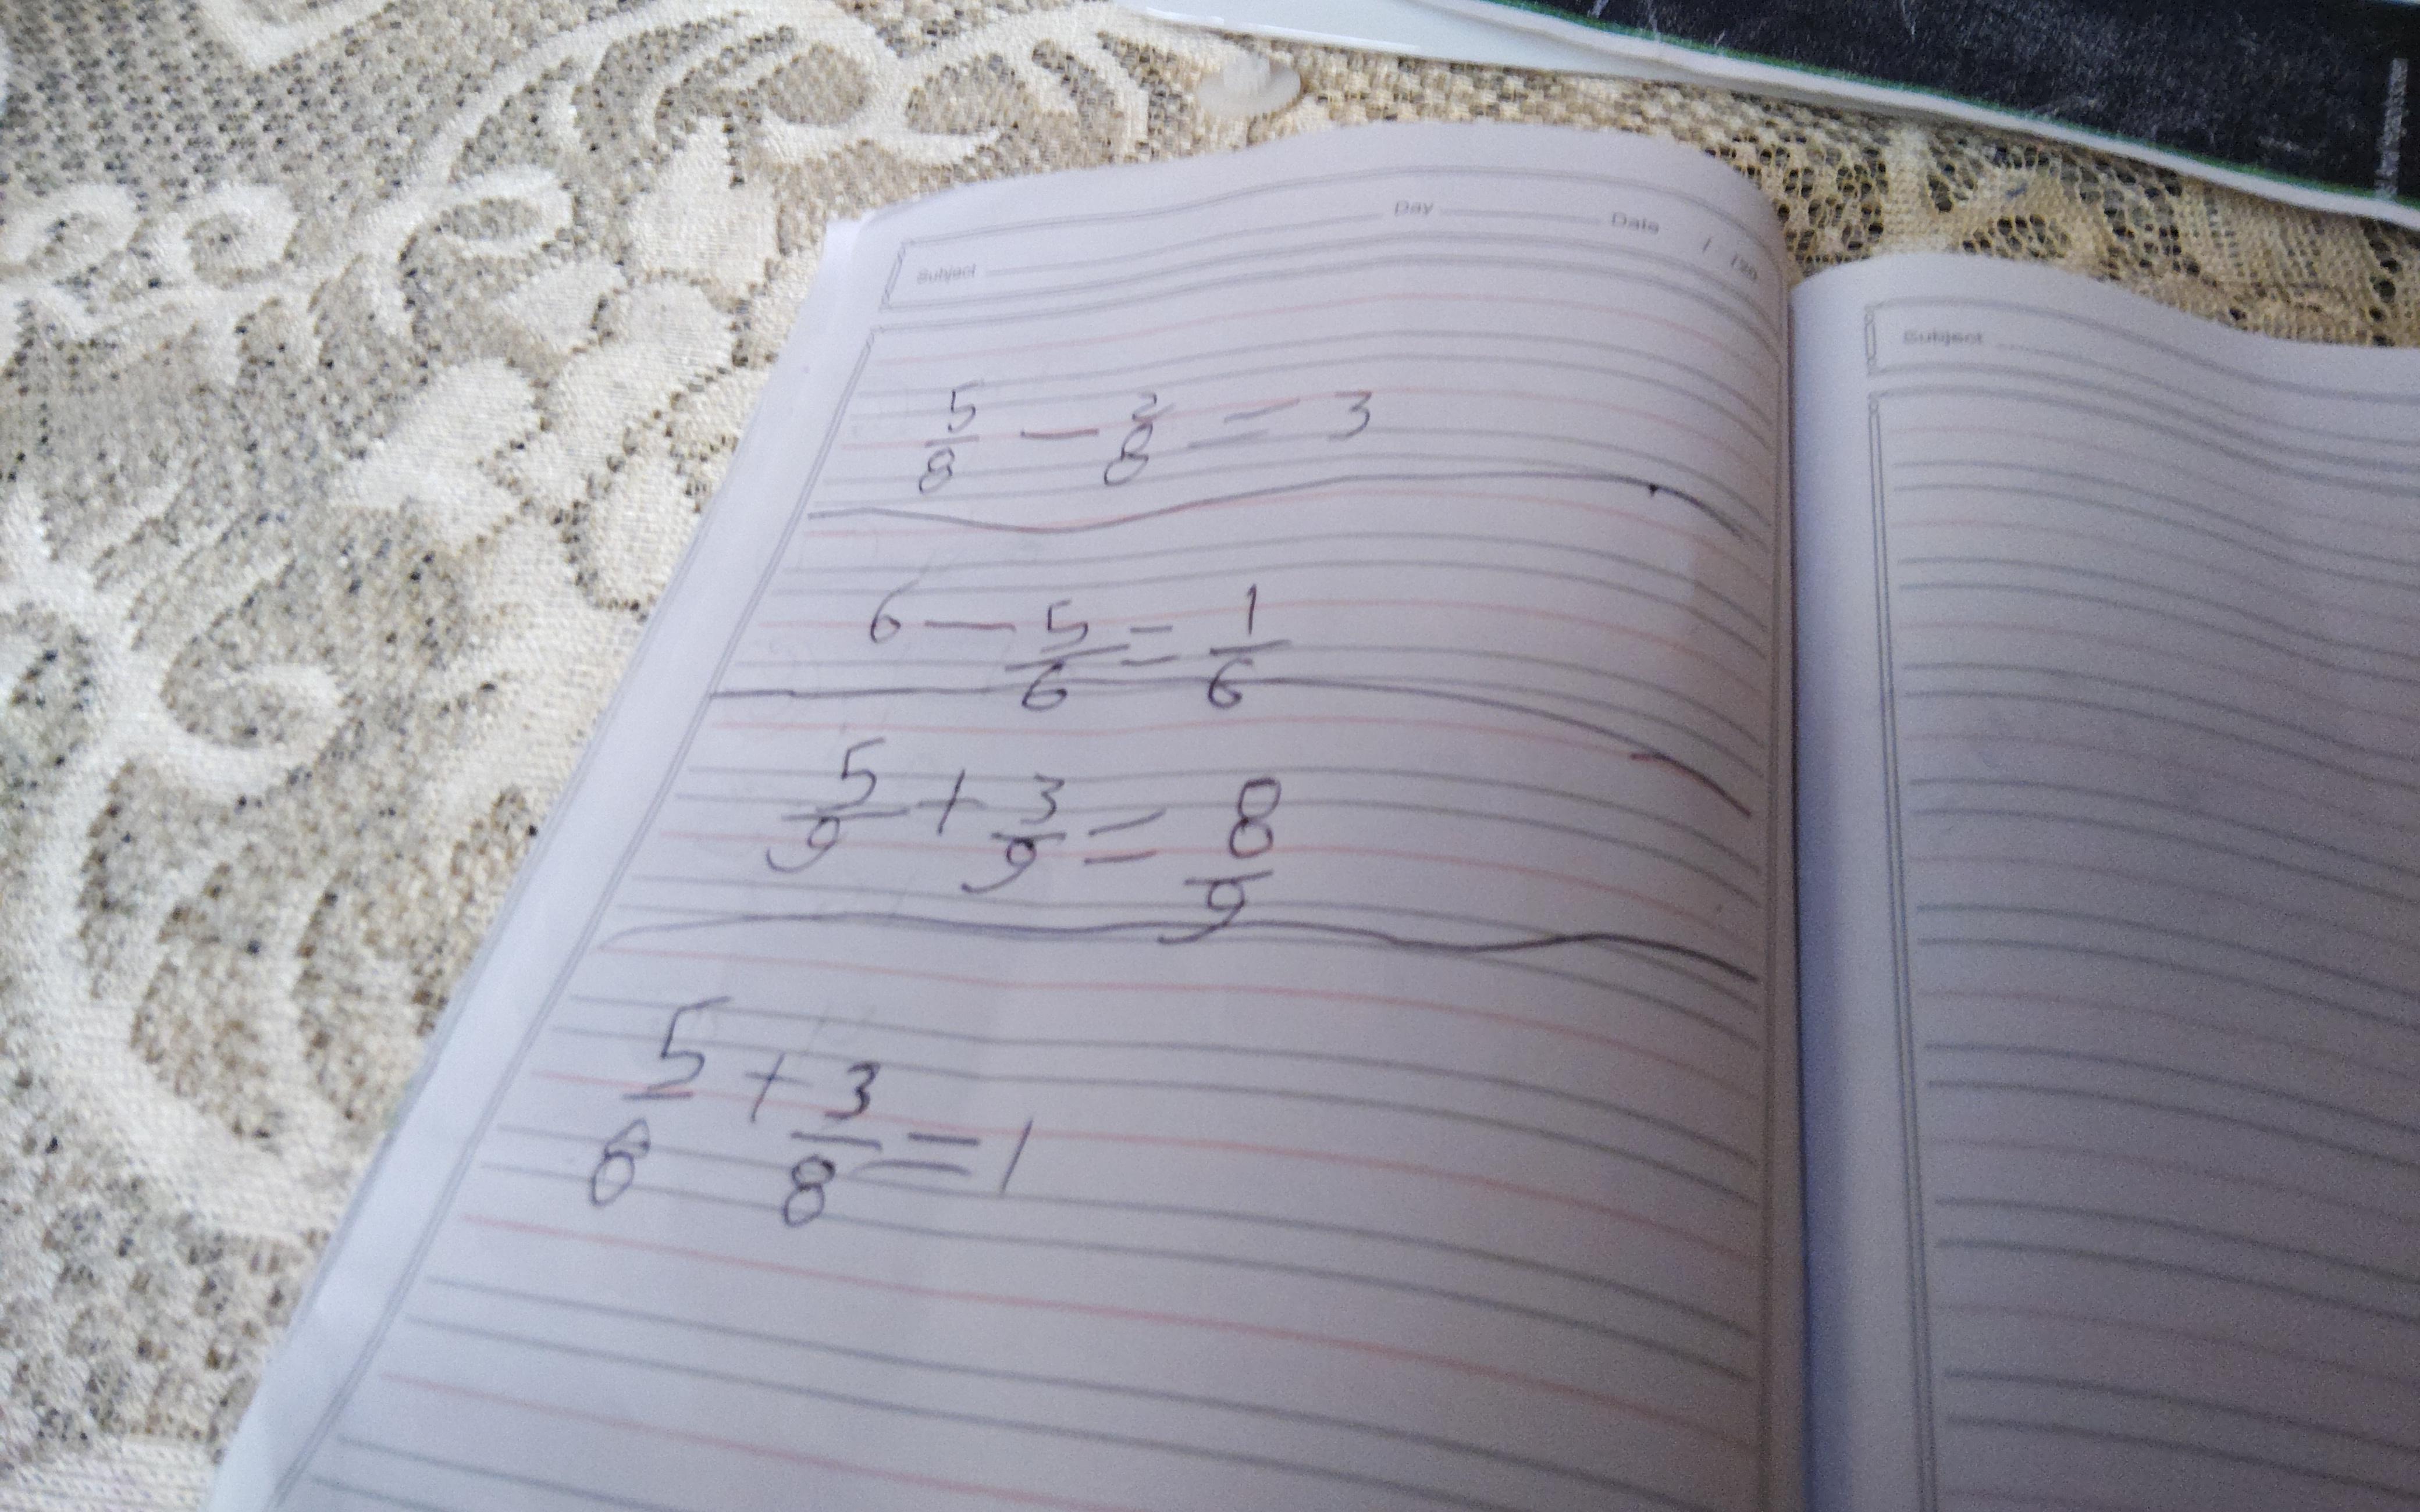 Day Date / /20
Subject
5/8 - 2/8 = 3
6 - 5/6 = 1/6
5/9 + 3/9 = 8/9
5/8 + 3/8 = 1
Subject